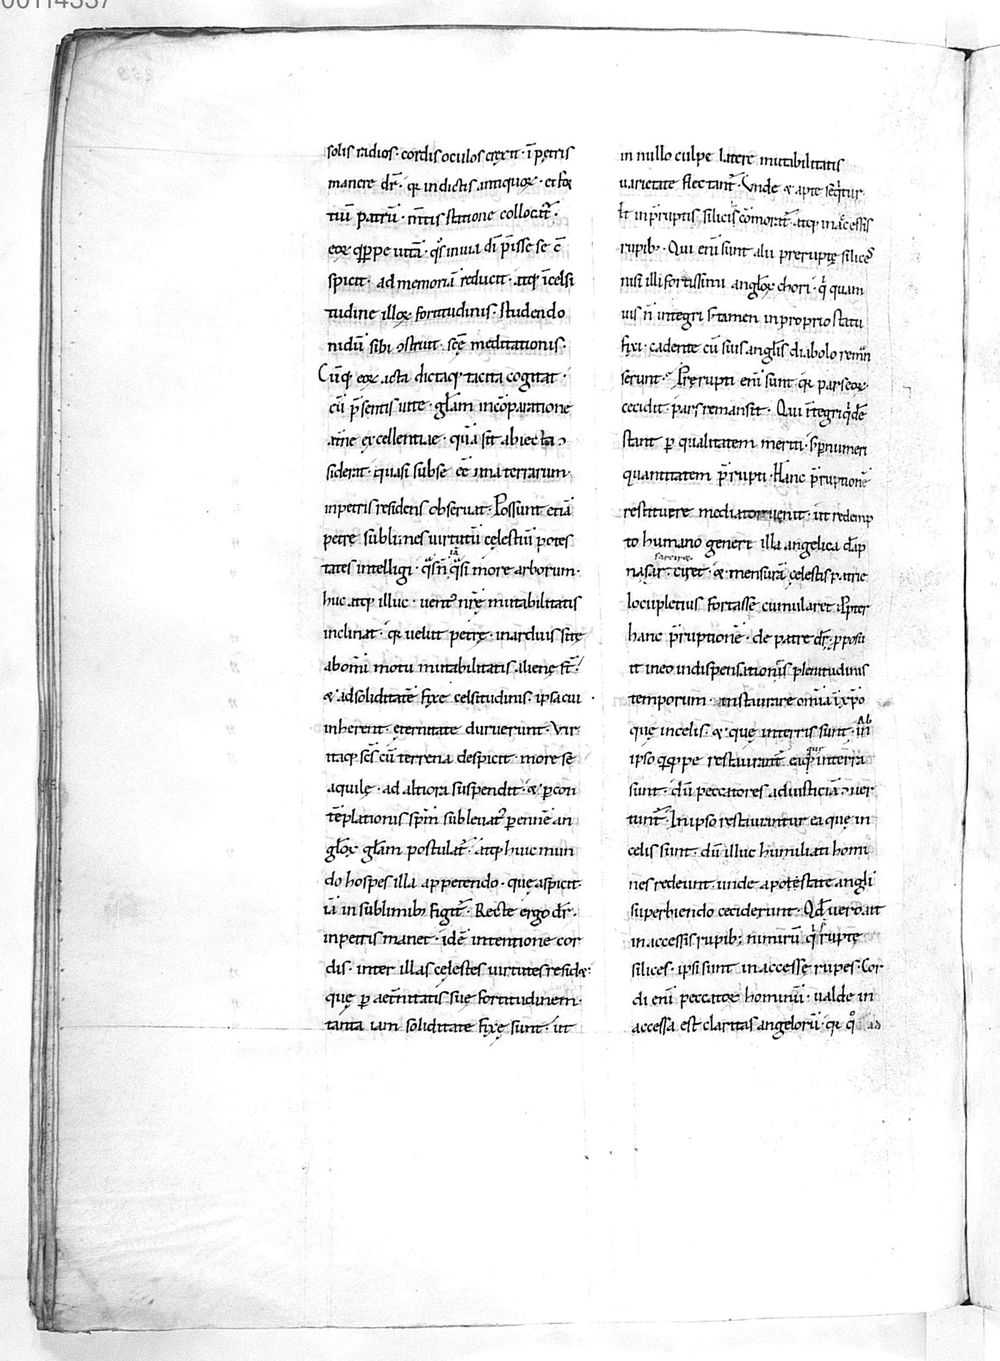 solis radios. cordis oculos erexit. ī petris
manere dr̄. qr̄ in dictis antiquoꝝ. et for
tiū patrū. mentis statione collocat̄.
eoꝝ q̄ppe vitā. quos in via dī p̄isse se c̄
spicit. ad memoriā reducit. atq; ī celsi
tudine illoꝝ fortitudinis. studendo
nidū sibi ꝯstruit. scę meditationis.
Cūq; eoꝝ acta dictaq; tacita cogitat.
cū p̄sentis vite. gl̄am incōparatione
ętne excellentiae. quā sit abiecta ꝯ
siderat. quasi sub se ēē ima terrarum.
in petris residens observat. Possunt etiā
petrę sublimes virtutū cęlestiū potes
tates intelligi. quas n̄ quasi more arborum.
huc atq; illuc. vent᾽ nr̄ę mutabilitatis
inclinat. qr̄ velut petrę. in arduis sitę
ab om̄i motu mutabilitatis alienę st̄.
& ad soliditatē fixe celsitudinis. ipsa cui
inherent. ęternitate duruerunt. Vir
itaq; scs̄ cū terrena despicit. more se
aquilę. ad altiora suspendit. & p con
tēplationis sp̄m sublevat᾽ pennē an
gl̄oꝝ gl̄am postulat. atq; huic mun
do hospes illa appetendo. quę aspicit.
iā in sublimib; figit̄. Recte ergo dr̄.
in petris manet. idē intentione cor
dis. inter illas cęlestes virtutes residet.
quę p aet̄nitatis sue fortitudinem.
tanta iam soliditate fixę sunt. ut
in nullo culpe latere mutabilitatis
varietate flectant̄. Unde & apte seq̄tur.
Et in p̄ruptis silicis cōmorat̄. atq; in accessis
rupib;. Qui eni sunt alii preruptę silices
nisi illi fortissimi angl̄oꝝ chori. qi quam
vis n̄ integri s; tamen in proprio statu
fixi. cadente cū suis angl̄is diabolo reman
serunt. Pręrupti eni sunt. qr̄ pars eoꝝ
cecidit. pars remansit. Qui ītegri qidē
stant p qualitatem meriti. s; p numeri
quantitatem p̄rupti. Hanc p̄ruptionē
restituere mediator venit. ut redemp
to humano genere illa angelica dāp
na sarciret. & mensurā cęlestis patrię
locupletius fortasse cumularet. Ppter
hanc p̄ruptionē. de patre dr̄. pposu
it in eo in dispensationis plenitudinis
temporum. instaurare omnia ī xp̄o
quę in celis. & quę in terris sunt. in
ipso q̄ppe restaurant̄ ea quę in terra
sunt. dū peccatores ad iusticiā ꝯver
tunt̄. In ipso restaurantur ea quę in
celis sunt. dū illuc humiliati homi
nes redeunt. unde apostatę angeli
superbiendo ceciderunt. Qd̄ vero ait
in accessis rupib; nimirū qi p̄ruptę
silices. ipsi sunt inaccessę rupes. Cor
di eni peccatoꝝ hominū. valde in
accessa est claritas angelorū. qr̄ qo ad